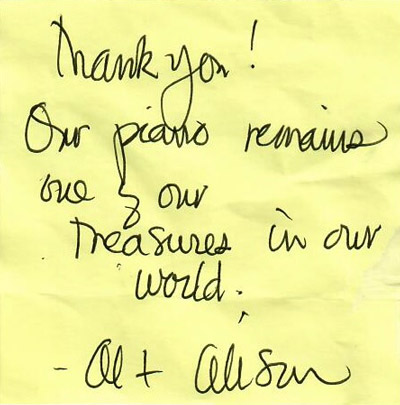 Thank you!
Our piano remains
one of our
treasures in our
world.
- Al + Alison